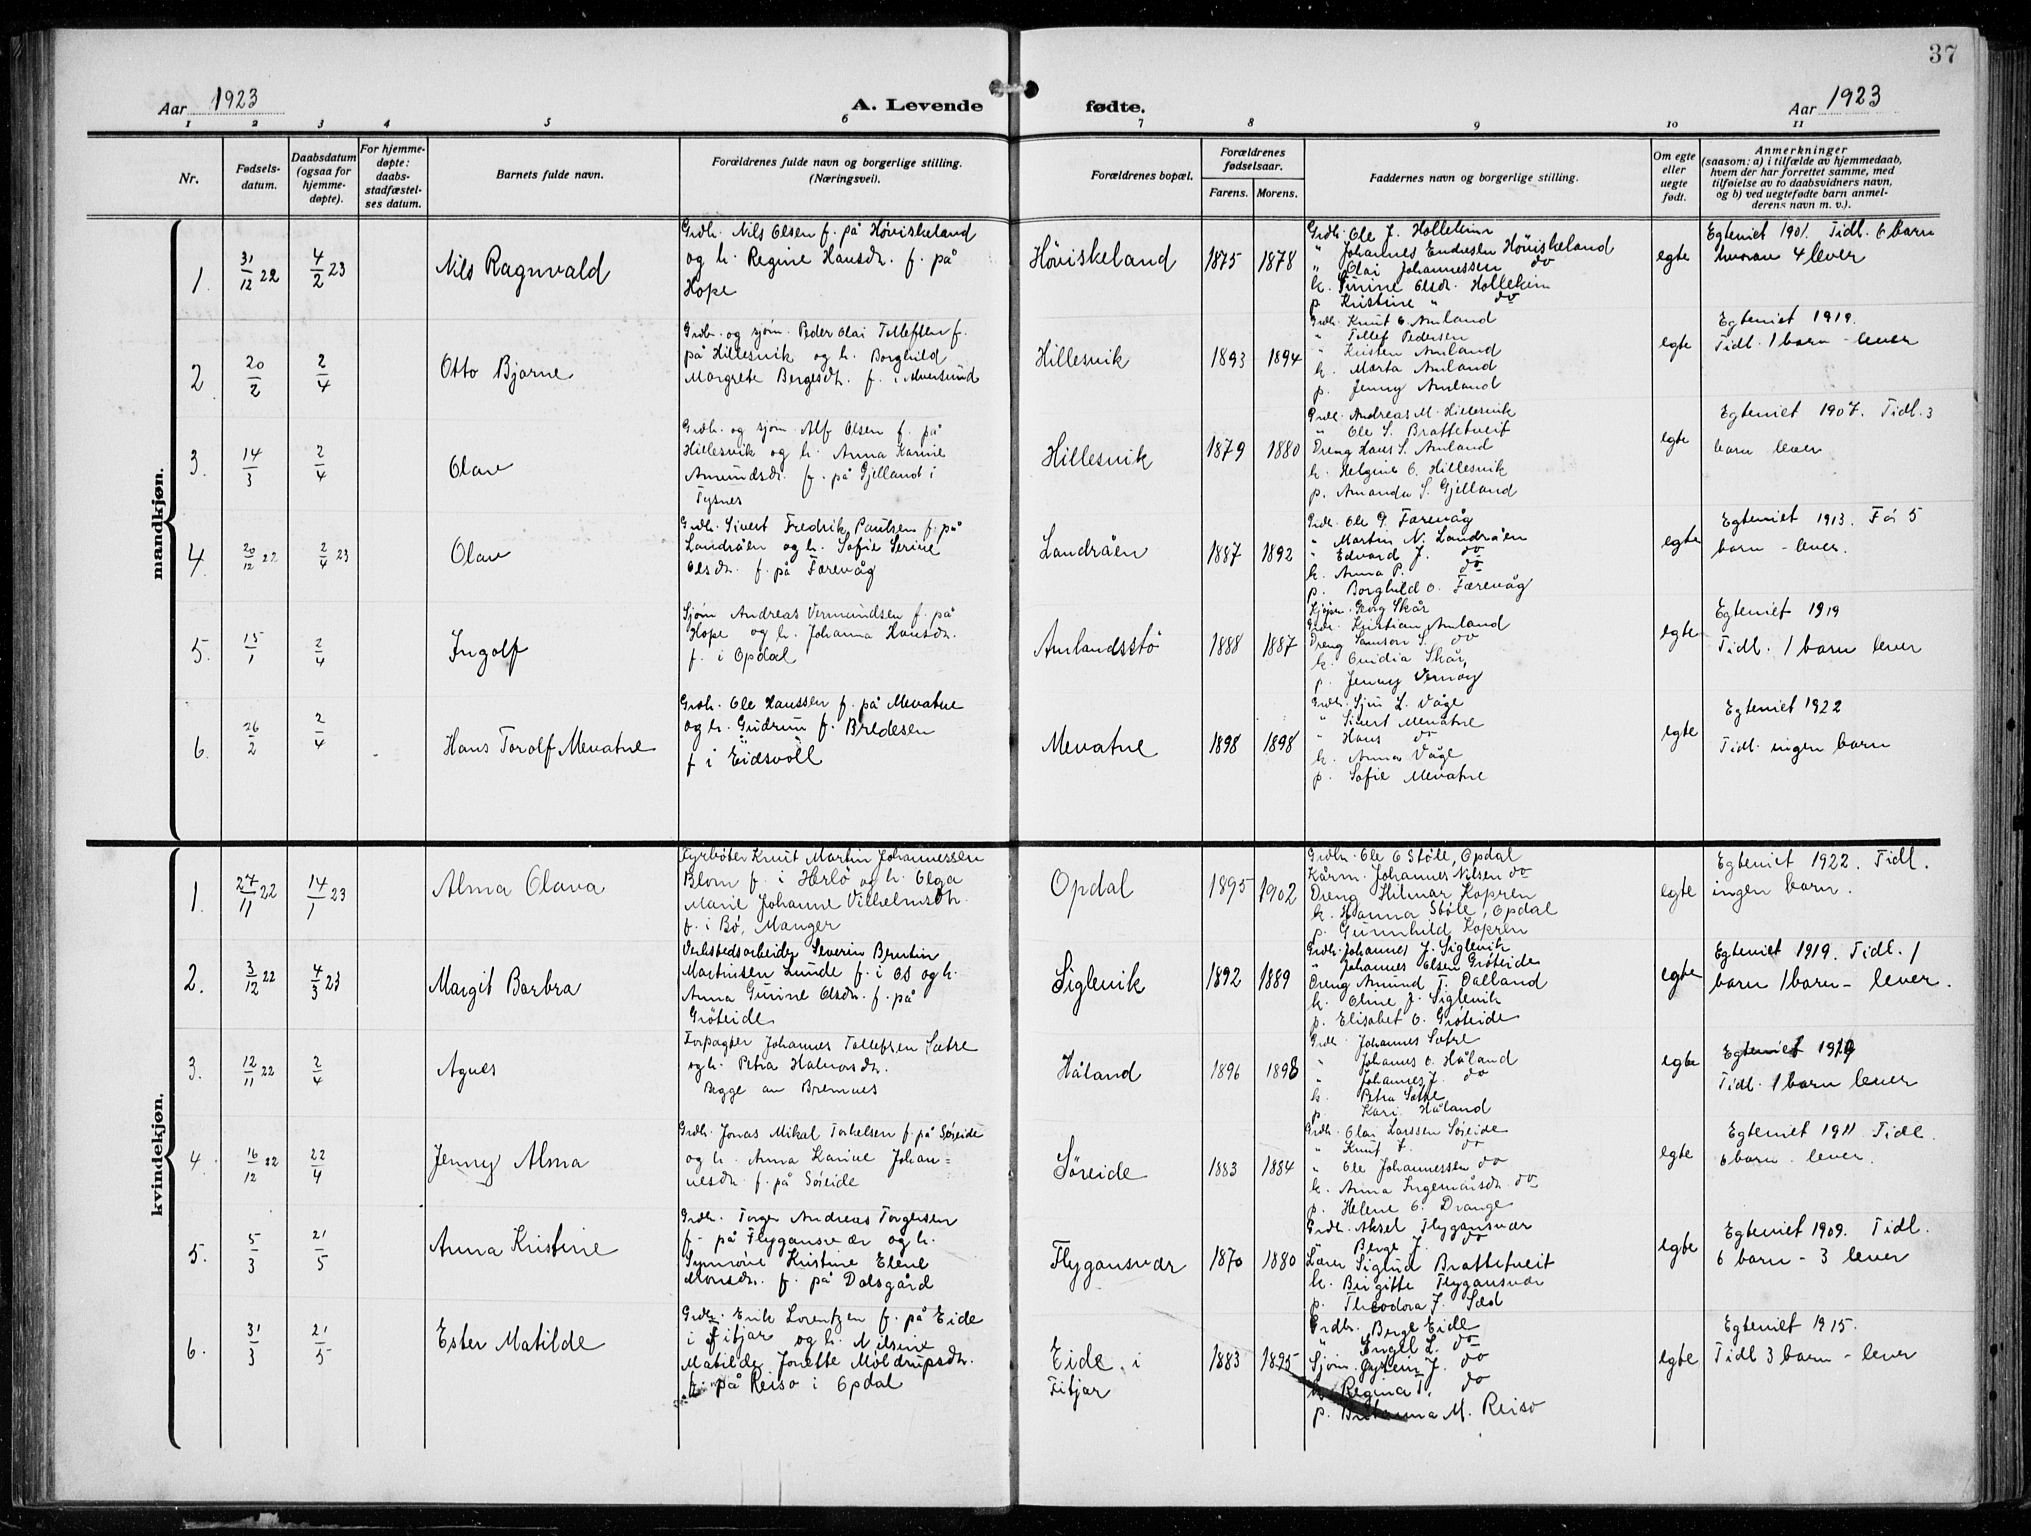 37
Aar 1923
A. Levende fødte.
Aar 1923
1 2 3 4 5 6 7 8 9 10 11
Nr.
Fødsels-
datum.
Daabsdatum
(ogsaa for
hjemme-
døpte).
For hjemme-
døpte:
daabs-
stadfæstel-
ses datum.
Barnets fulde navn.
Forældrenes fulde navn og borgerlige stilling.
(Næringsvei).
Forældrenes bopæl.
Forældrenes
fødselsaar.
Farens. Morens.
Faddernes navn og borgerlige stilling.
Om egte
eller
uegte
født.
Anmerkninger
(saasom: a) i tilfælde av hjemmedaab,
hvem der har forrettet samme, med
tilføielse av to daabsvidners navn,
og b) ved uegtefødte barn anmel-
derens navn m. v.).
mandkjøn.
1.
31/12 22
4/2 23
Nils Ragnvald
Grdbr. Nils Olsen f. på Høviskeland
og h. Regine Hansdr. f. på
Hope
Høviskeland
1875
1878
Grdbr. Ole J. Hollekim
" Johannes Endresen Høviskeland
" Olai Johannessen do
k. Olsdr. Hollekim
p. Kristine " do
egte
Egteviet 1901. Tidl. 6 barn
hvorav 4 lever
2
20/2
2/4
Otto Bjarne
Grdbr. og sjøm. Peder Olai Tollefsen f.
på Hillesvik og h. Borghild
Margrete Bergesdr. f. i Alversund
Hillesvik
1893
1894
Grdbr. Knut O. Amland
" Tollef Pedersen
" Kristen Amland
k. Marta Amland
p. Jenny Amland
egte
Egteviet 1919.
Tidl. 1 barn - lever
3.
14/3
2/4
Olav
Grdbr. og sjøm. Alf Olsen f. på
Hillesvik og h. Anna Karine
Amundsdr. f. på Gjelland i
Tysnes
Hillesvik
1879
1880
Grdbr. Andreas M. Hillesvik
" Ole S. Brattetveit
Dreng Hans S. Amland
k. Helgine O. Hillesvik
p. Amanda S. Gjelland
egte
Egteviet 1907. Tidl. 3
barn lever
4.
20/12 22
2/4 23
Olav
Grdbr. Sivert Fredrik Paulsen f. på
Landråen og h. Sofie Serine
Olsdr. f. på Færevåg
Landråen
1887
1892
Grdbr. Ole P. Færevåg
" Martin N. Landråen
" Edvard J. do
k. Anna P. do
p. Borghild O. Færevåg
egte
Egteviet 1913. Før 5
barn - lever.
5.
15/1
2/4
Ingolf
Sjøm Andreas Vermundsen f. på
Hope og h. Johanna Hansdr.
f. i Opdal
Amlandsstø
1888
1887
Georg Skår
Grdbr. Kristian Amland
Dreng Samson S. do
k. Ovidia Skår,
p. Jenny Vernøy
egte
Egteviet 1919
Tidl. 1 barn lever
6.
26/2
2/4
Hans Torolf Mevatne
Grdbr. Ole Hanssen f. på Mevatne
og h. Gudrun f. Bredesen
f i Eidsvoll
Mevatne
1898
1898
Grdbr. Sjur L. Våge
" Sivert Mevatne
" Hans do
k. Anna Våge
p. Sofie Mevatne
egte
Egteviet 1922
Tidl. ingen barn
kvindekjøn.
1.
24/11 22
14/1 23
Alma Olava
Fyrbøter Knut Martin Johannessen
Blom f. i Herlø og h. Olga
Marie Johanne Vilhelmsdr.
f. i Bø, Manger
Opdal
1895
1902
Grdbr. Ole O Støle, Opdal
Kårm. Johannes Nilsen do
Dreng Hilmar Kopren
k. Hanna Støle, Opdal
p. Gunnhild Kopren
egte
Egteviet 1922. Tidl.
ingen barn.
2.
3/12 22
4/3 23
Margit Barbra
Verkstedsarbeider Severin Berntin
Martinsen Lunde f. i Os og h.
Anna Gurine Olsdr. f. på
Grøteide
Siglevik
1892
1889
Grdbr. Johannes J. Siglevik
" Johannes Olsen Grøteide
Dreng Amund T. Dalland
k. Oline J. Siglevik
p. Elisabet O. Grøteide
egte
Egteviet 1919. Tidl. 1
barn 1 barn - lever.
3.
12/11 22
2/4
Agnes
Forpagter Johannes Tollefsen Sætre
og h. Petra Halvorsdr.
Begge av Bremnes
Håland
1896
1898
Grdbr. Johannes Sætre
" Johannes O. Håland
" Johannes J. do
k. Petra Sætre
p. Kari Håland
egte
Egteviet 1919
Tidl. 1 barn lever
4.
16/12 22
22/4
Jenny Alma
Grdbr. Jonas Mikal Torkelsen f. på Søreide
og h. Anna Karine Johan-
nesdr. f. på Søreide
Søreide
1883
1884
Grdbr. Olai Larssen Søreide
" Knut L. do
" Ole Johannessen do
k. Anna Ingemarsdr. do
p. Helene O. Drange
egte
Egteviet 1911 Tidl.
6 barn - lever.
5.
5/3
21/5
Anna Kristine
Grdbr. Torger Andreas Torgersen
f. på Flygansvær og h.
Synnøve Kristine Elene
Monsdr. f. på Dalsgård
Flygansvær
1870
1880
Grdbr. Aksel Flygansvær
" Berge J. do
Lærer Siglud Brattetveit
k. Birgitte Flygansvær
p. Theodora J. Sæd
egte
Egteviet 1909. Tidl.
6 barn - 3 lever
6.
31/3
21/5
Ester Matilde
Grdbr. Erik Lorentzen f. på Eide
i Fitjar og h. Nilsine
Matilde Jonette Moldrupsdr.
f. på Reisø i Opdal
Eide i
Fitjar
1883
1895
Grdbr. Berge Eide
" Engel L. do
Sjøm. Øystein J. do
k. Regina T. do
p. M. Reisø
egte
Egteviet 1915.
Tidl 3 barn - lever